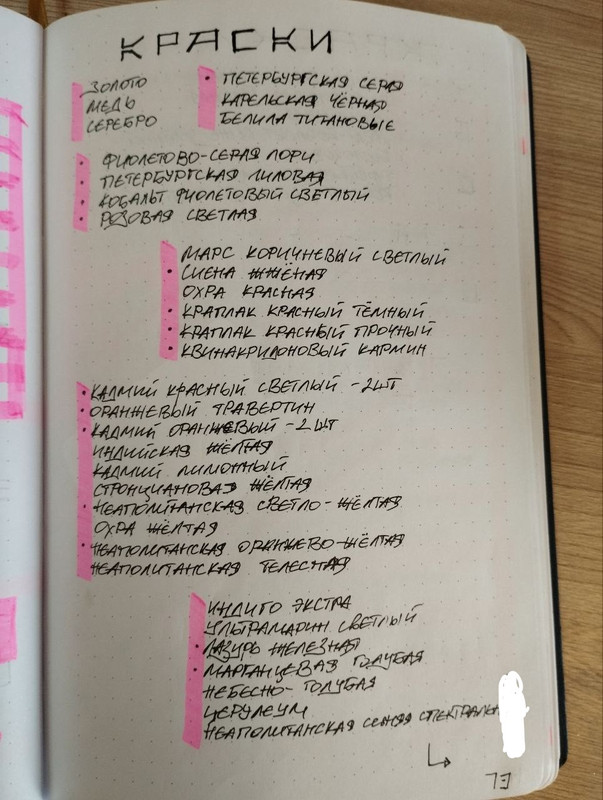 КРАСКИ
ЗОЛОТО
МЕДЬ
СЕРЕБРО
• ПЕТЕРБУРГСКАЯ СЕРАЯ
КАРЕЛЬСКАЯ ЧЁРНАЯ
БЕЛИЛА ТИТАНОВЫЕ
ФИОЛЕТОВО-СЕРАЯ ЛОРИ
• ПЕТЕРБУРГСКАЯ ЛИЛОВАЯ
• КОБАЛЬТ ФИОЛЕТОВЫЙ СВЕТЛЫЙ
• РОЗОВАЯ СВЕТЛАЯ
МАРС КОРИЧНЕВЫЙ СВЕТЛЫЙ
• СИЕНА ЖЖЁНАЯ
ОХРА КРАСНАЯ
• КРАПЛАК КРАСНЫЙ ТЁМНЫЙ
• КРАПЛАК КРАСНЫЙ ПРОЧНЫЙ
• КВИНАКРИДОНОВЫЙ КАРМИН
• КАДМИЙ КРАСНЫЙ СВЕТЛЫЙ - 2 ШТ
• ОРАНЖЕВЫЙ ТРАВЕРТИН
• КАДМИЙ ОРАНЖЕВЫЙ - 2 ШТ
ИНДИЙСКАЯ ЖЁЛТАЯ
КАДМИЙ ЛИМОННЫЙ
СТРОНЦИАНОВАЯ ЖЁЛТАЯ
• НЕАПОЛИТАНСКАЯ СВЕТЛО-ЖЁЛТАЯ
ОХРА ЖЁЛТАЯ
• НЕАПОЛИТАНСКАЯ ОРАНЖЕВО-ЖЁЛТАЯ
НЕАПОЛИТАНСКАЯ ТЕЛЕСНАЯ
ИНДИГО ЭКСТРА
УЛЬТРАМАРИН СВЕТЛЫЙ
• ЛАЗУРЬ ЖЕЛЕЗНАЯ
• МАРГАНЦЕВАЯ ГОЛУБАЯ
НЕБЕСНО-ГОЛУБАЯ
ЦЕРУЛЕУМ
НЕАПОЛИТАНСКАЯ СИНЯЯ